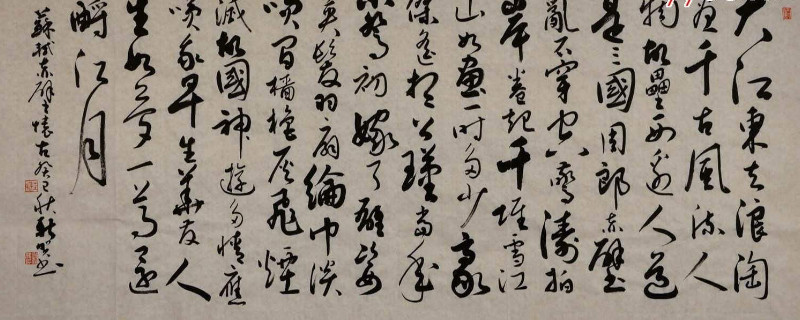 大江東去浪淘
盡千古風流人
物故壘西邊人道
是三國周郎赤壁
亂石穿空驚濤拍
岸卷起千堆雪江
山如畫一時多少豪
傑遙想公瑾當年
小喬初嫁了雄姿
英發羽扇綸巾談
笑間檣櫓灰飛煙
滅故國神遊多情應
笑我早生華髮人
生如夢一尊還
酹江月
蘇軾赤壁懷古癸巳秋